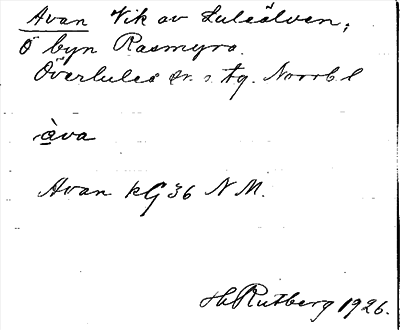 Avan Vik av Luleälven,
Ö byn Rasmyra.
Överluleå sn. o. tg. Norrb l
àva
Avan kG 36 N M.
Hh Rutberg 1926.